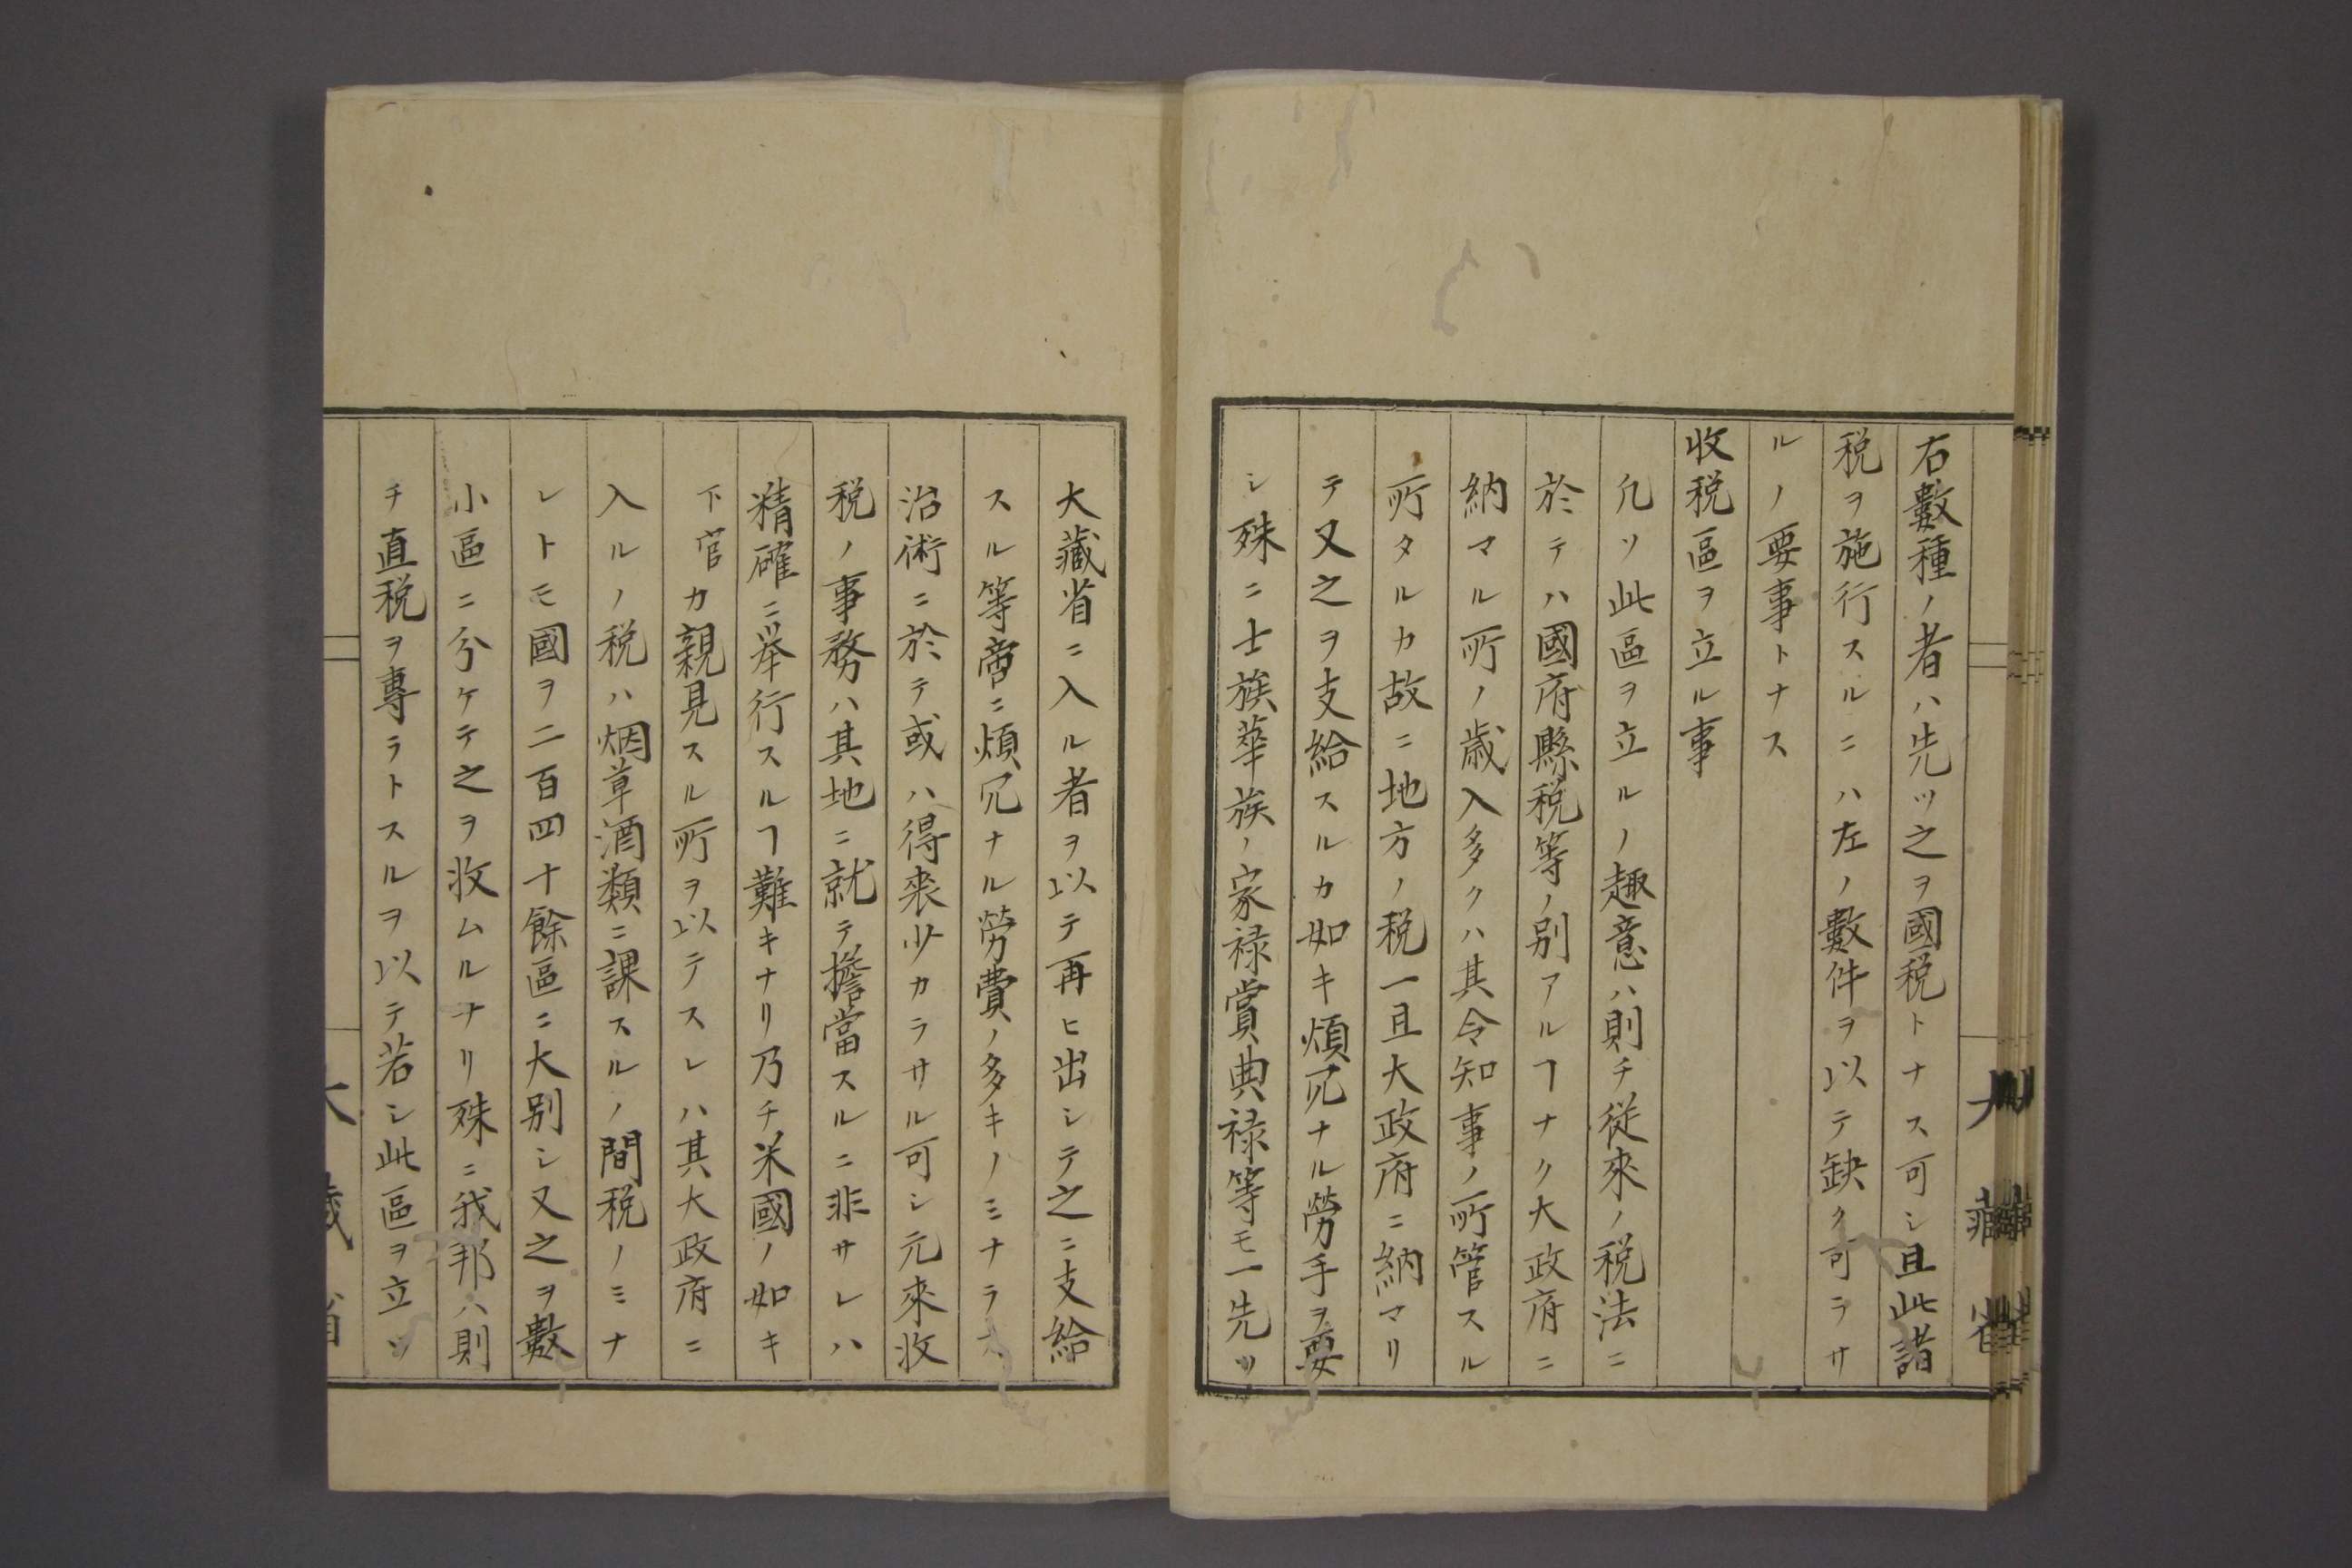 右數種ノ者ハ先ツ之ヲ國税トナス可シ且此諸
税ヲ施行スルニハ左ノ數件ヲ以テ缺ク可ラサ
ルノ要事トナス
收税區ヲ立ル事
凢ソ此區ヲ立ルノ趣意ハ則チ從來ノ税法ニ
於テハ國府縣税等ノ別アルヿナク大政府ニ
納マル所ノ歳入多クハ其令知事ノ所管スル
所タルカ故ニ地方ノ税一旦大政府ニ納マリ
テ又之ヲ支給スルカ如キ煩冗ナル勞手ヲ要
シ殊ニ士族華族ノ家禄賞典禄等モ一先ツ
大藏省ニ入ル者ヲ以テ再ヒ出シテ之ニ支給
スル等啻ニ煩冗ナル勞費ノ多キノミナラス
治術ニ於テ或ハ得喪少カラサル可シ元來收
税ノ事務ハ其地ニ就テ擔當スルニ非サレハ
精確ニ举行スルヿ難キナリ乃チ米國ノ如キ
下官カ親見スル所ヲ以テスレハ其大政府ニ
入ルノ税ハ烟草酒類ニ課スルノ間税ノミナ
レトモ國ヲ二百四十餘區ニ大別シ又之ヲ數
小區ニ分ケテ之ヲ收ムルナリ殊ニ我邦ハ則
チ直税ヲ專ラトスルヲ以テ若シ此區ヲ立ツ
大藏省